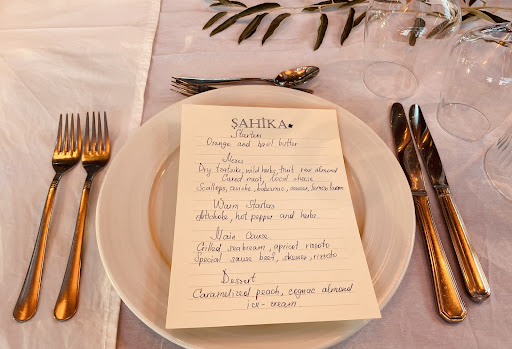 ŞAHİKA
Starters
Orange and basil butter
Mezes
Dry, wild herbs, fruit raw almond
Cured meat, local cheese
Scallops, ceviche, balsamic,
Warm Starters
Artichoke, hot pepper and herbs
Main Course
Grilled seabream, apricot risotto
Special sauce beef, skewer, risotto
Dessert
Caramelized peach, cognac almond
ice-cream